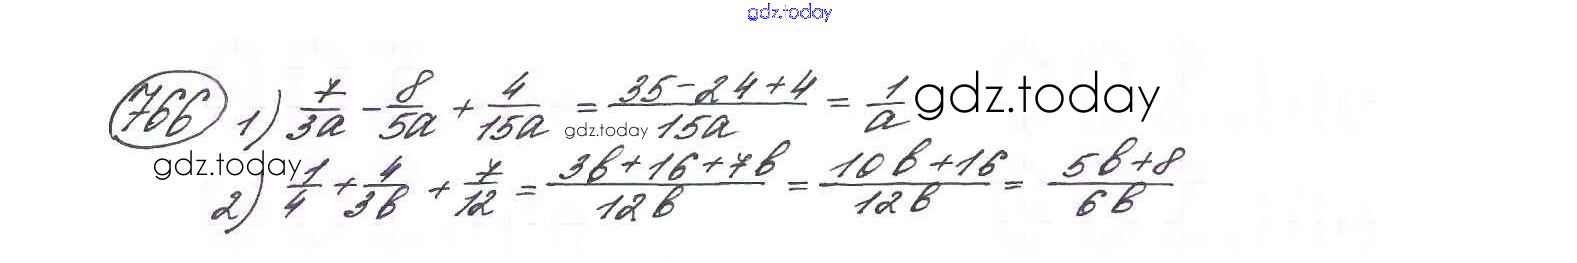 gdz.today
766 1) 7/3a - 8/5a + 4/15a = (35-24+4)/15a = 1/a gdz.today
gdz.today
gdz.today
2) 1/4 + 4/3b + 7/12 = (3b+16+7b)/12b = (10b+16)/12b = (5b+8)/6b